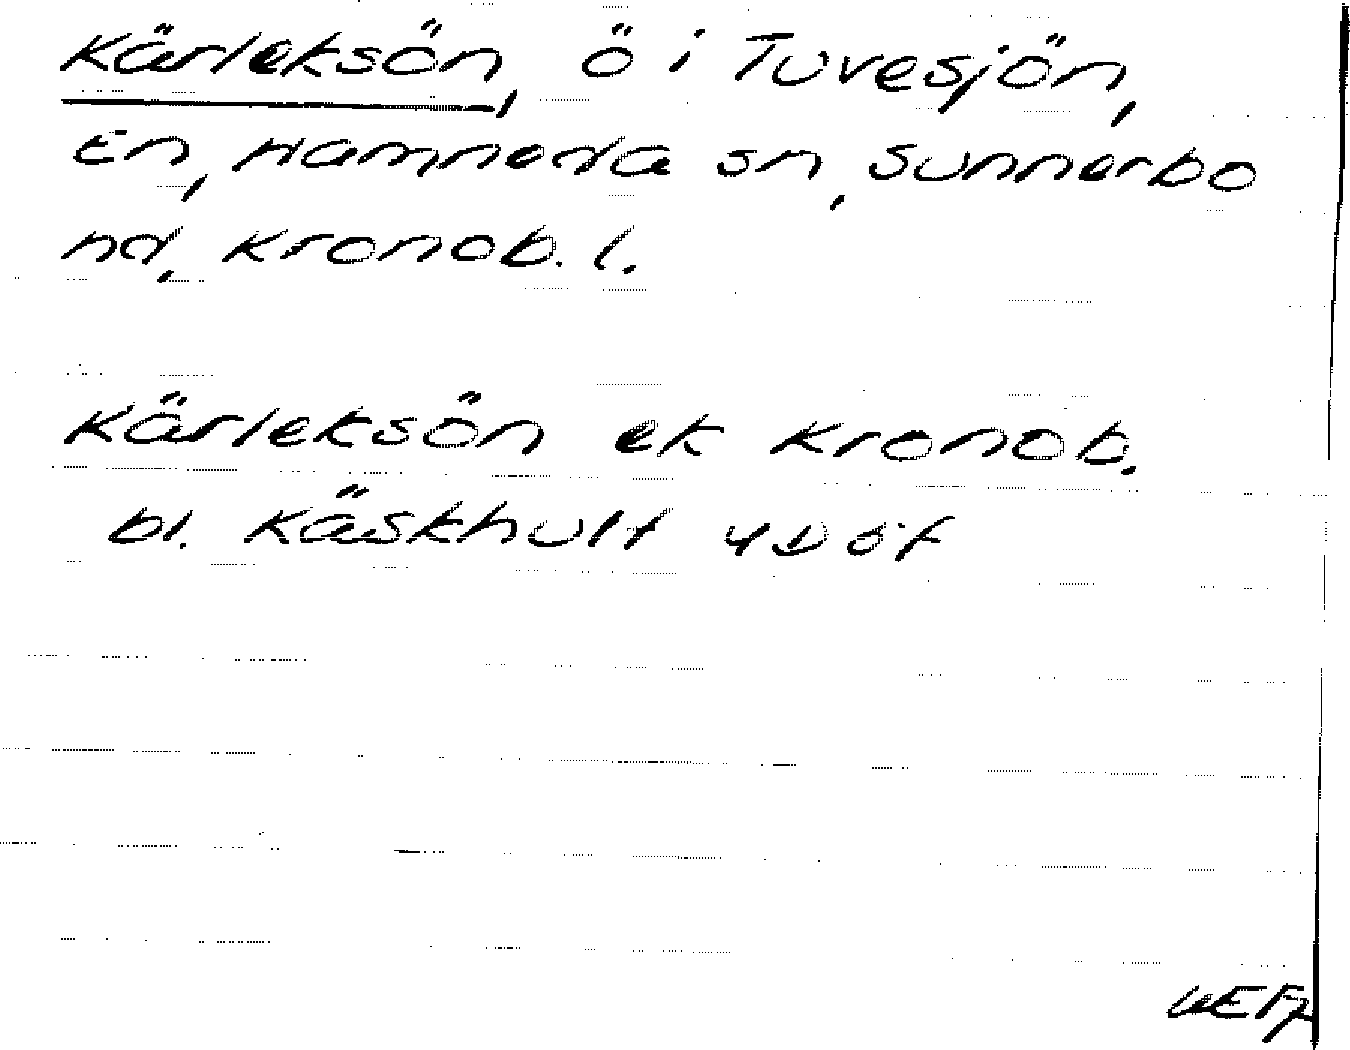 Kärleksön, ö i Tuvesjön,
En, Hamneda sn, Sunnerbo
hd, Kronob. l.
Kärleksön ek Kronob.
bl. Käskhult 4D öf